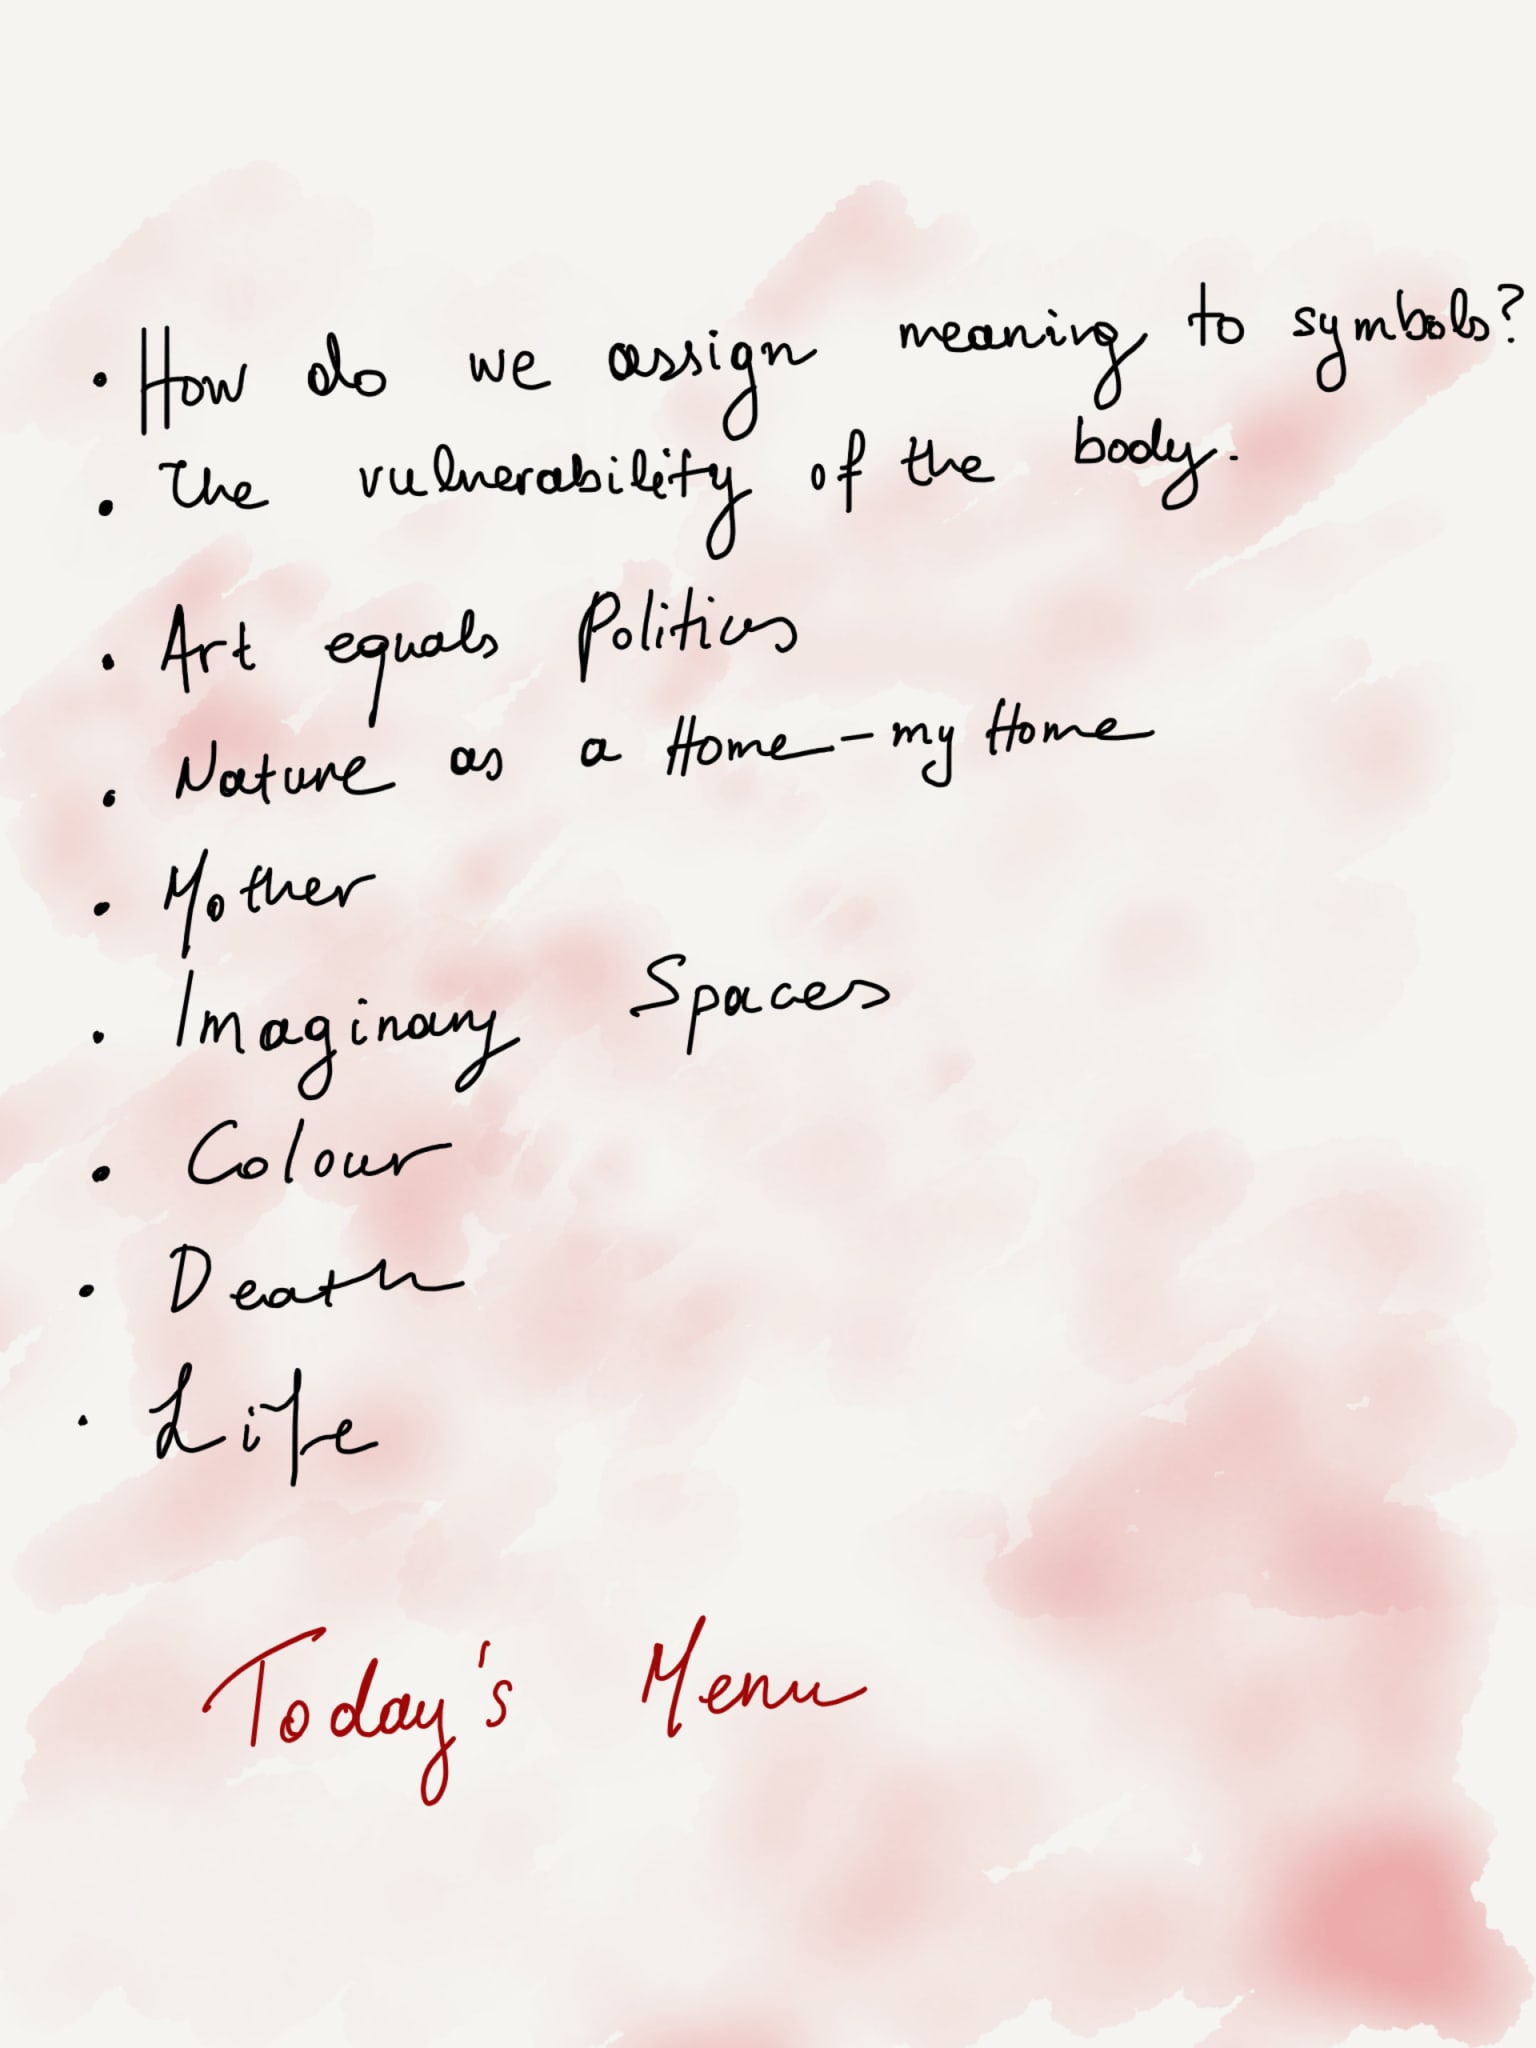 • How do we assign meaning to symbols?
• The vulnerability of the body.
• Art equals Politics
• Nature as a Home - my Home
• Mother
• Imaginary Spaces
• Colour
• Death
• Life
Today's Menu